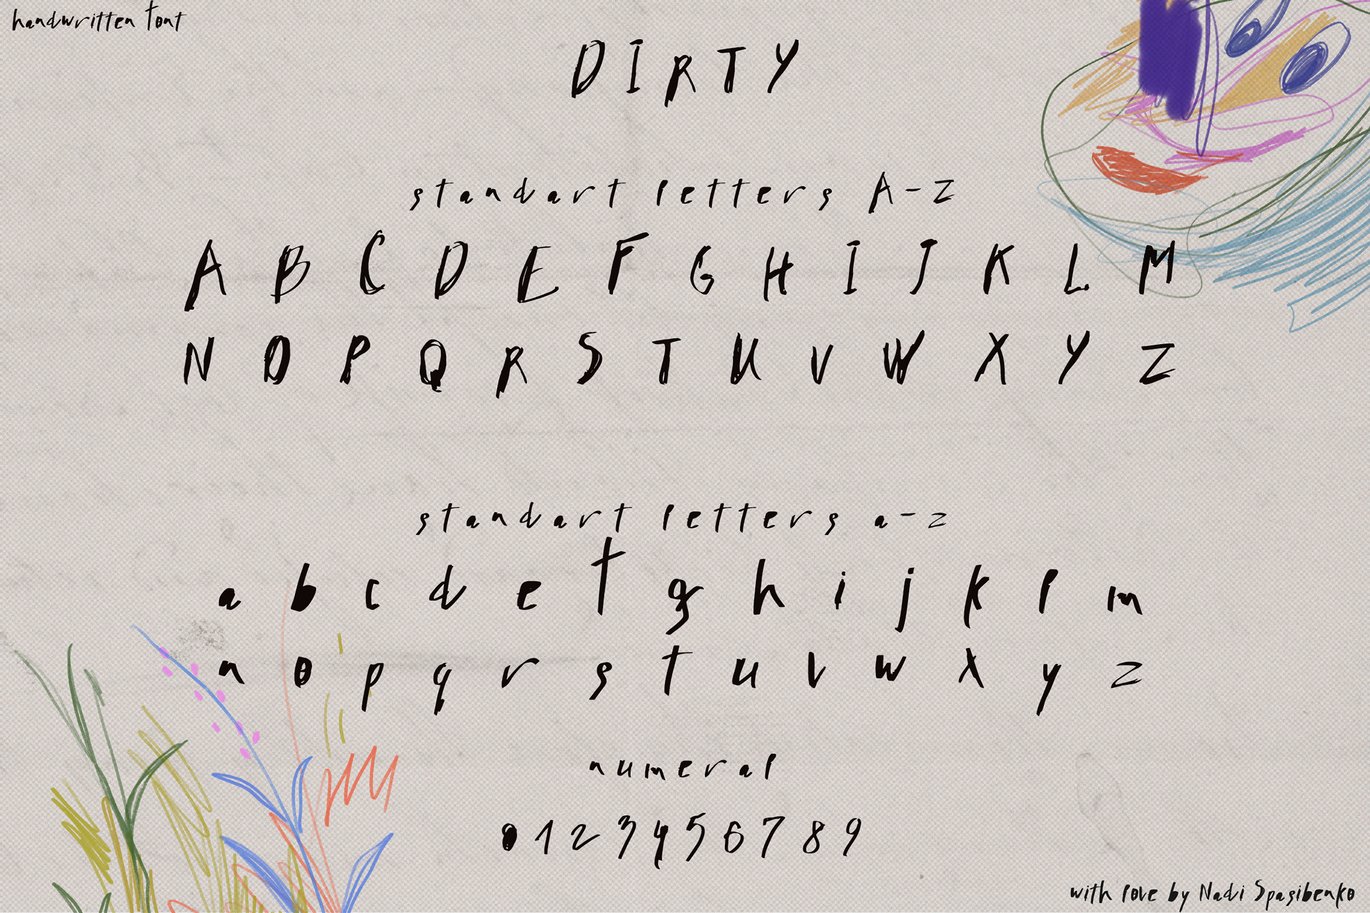 handwritten font
DIRTY
standart letters A-Z
A B C D E F G H I J K L M
N O P Q R S T U V W X Y Z
standart letters a-z
a b c d e f g h i j k l m
n o p q r s t u v w x y z
numeral
0 1 2 3 4 5 6 7 8 9
with love by Nadi Spasibenko